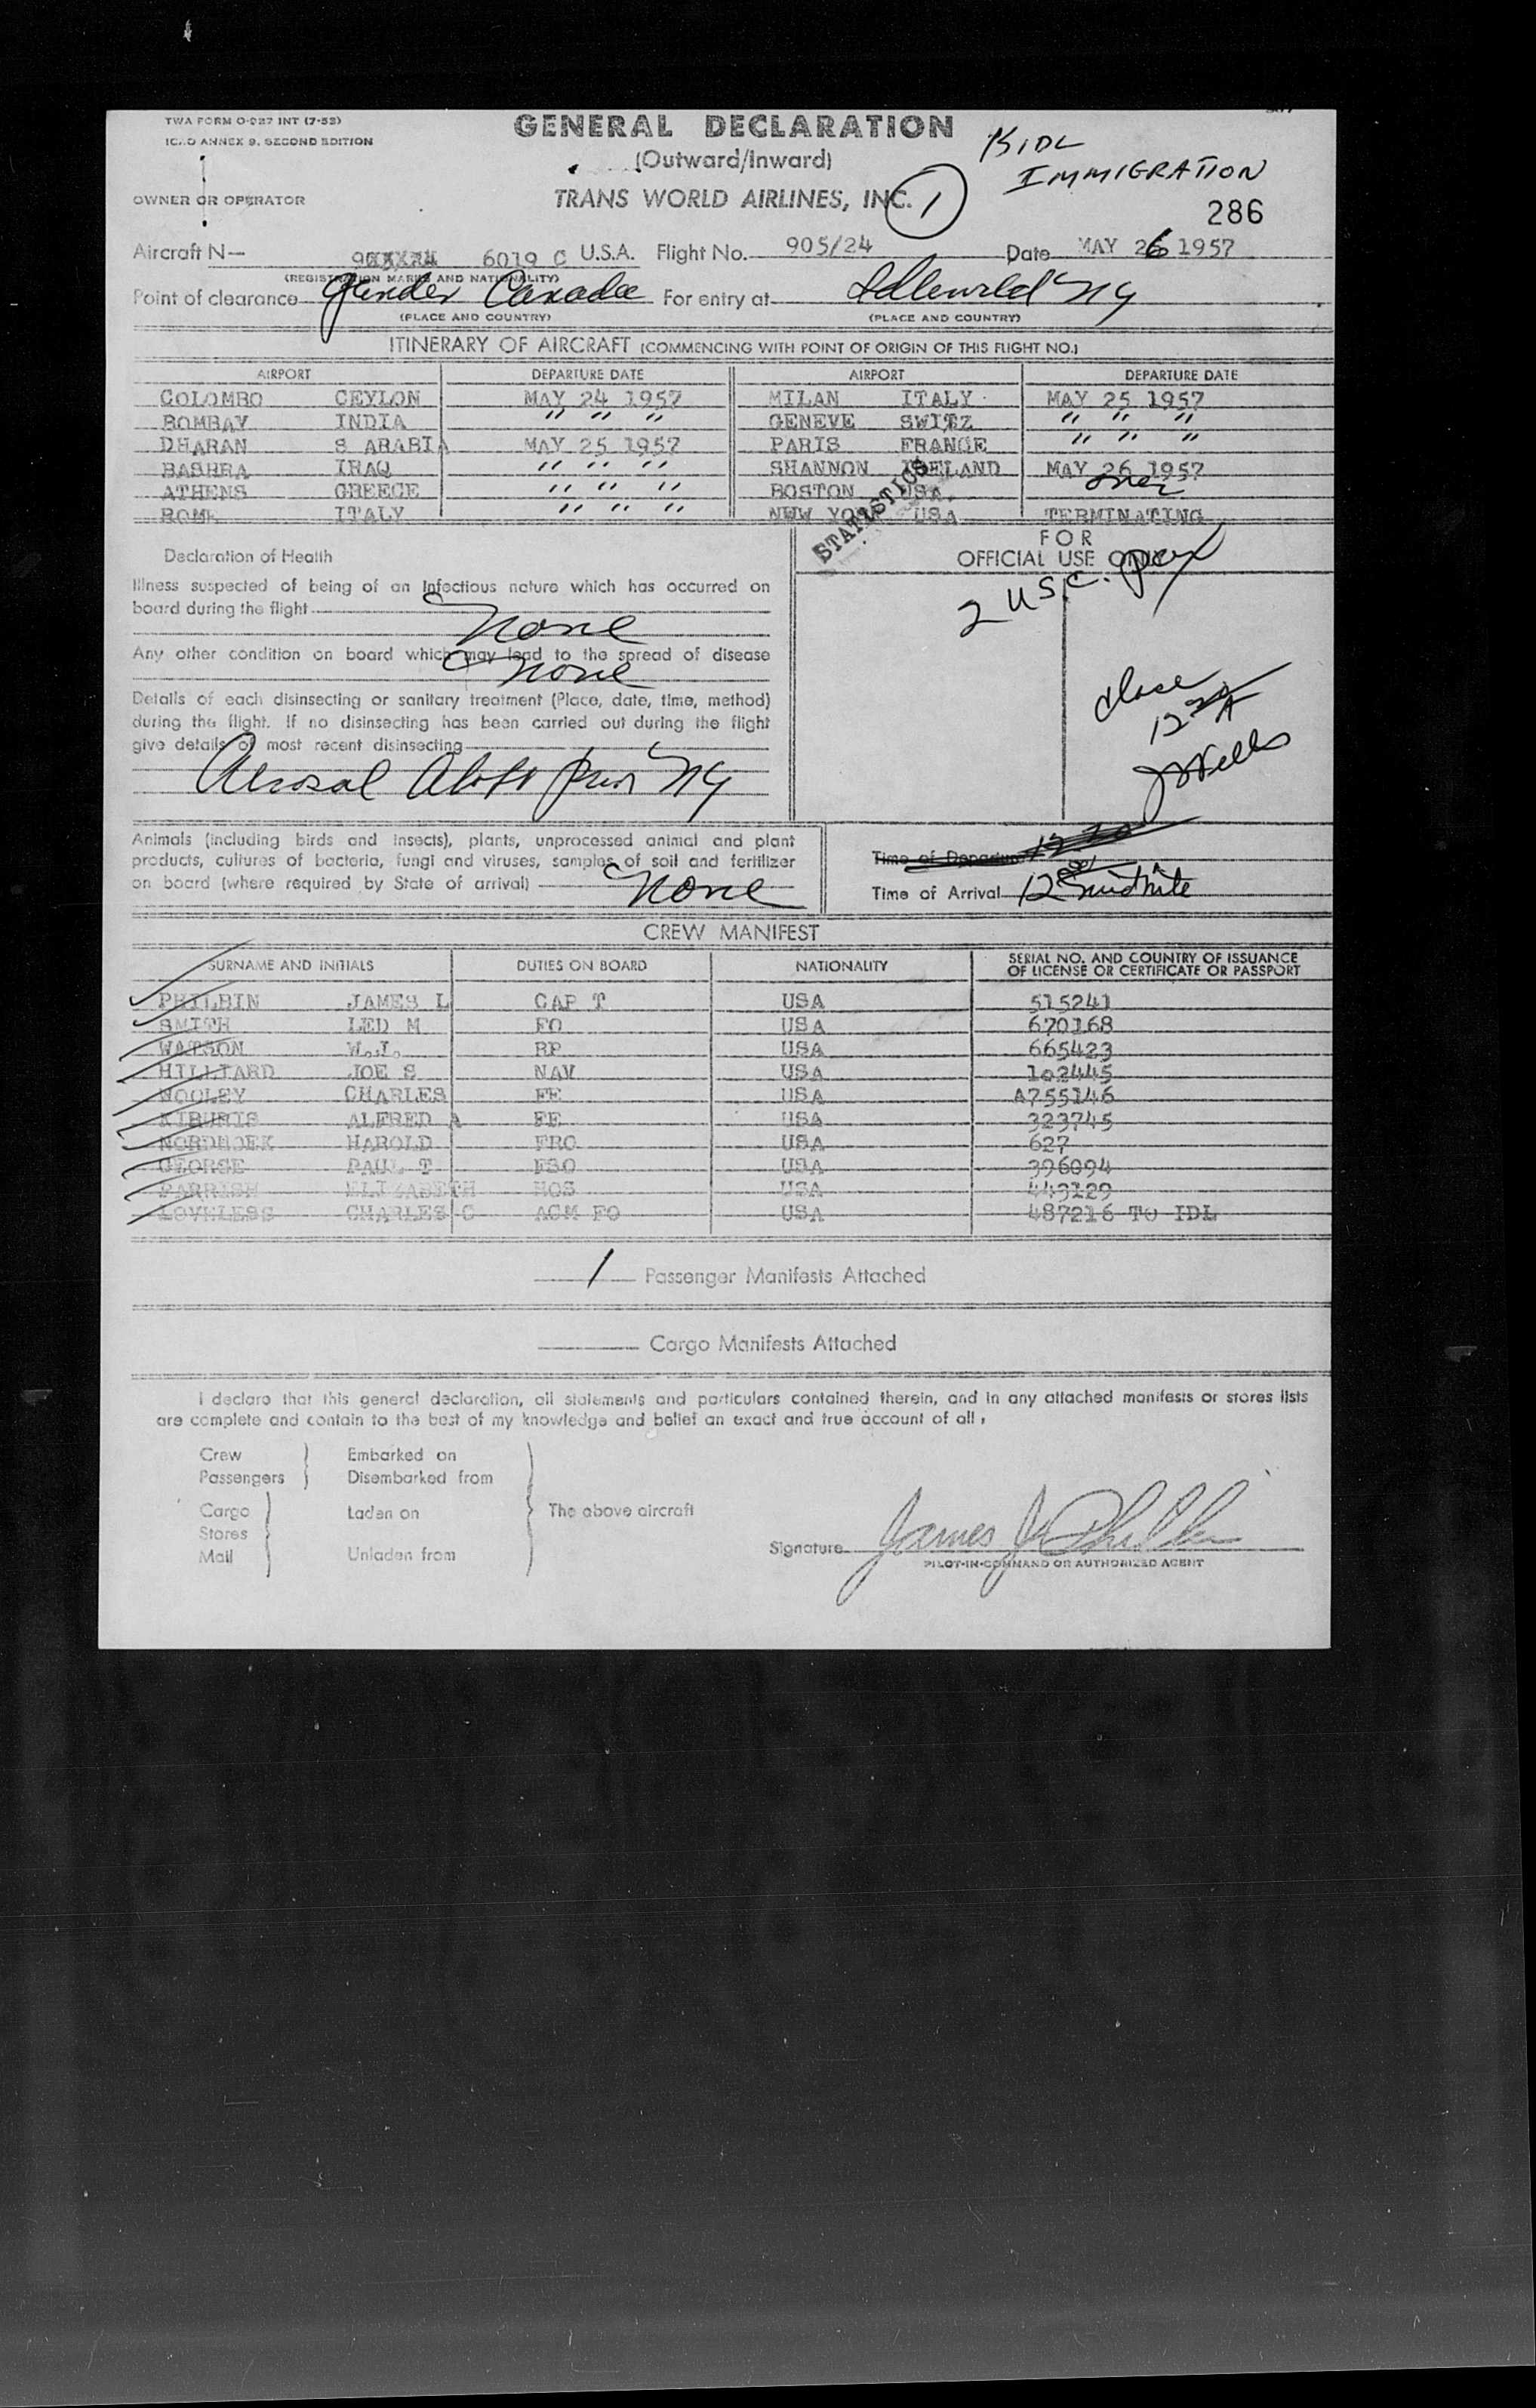 TWA FORM O-027 INT (7-52)
ICAO ANNEX 9, SECOND EDITION
GENERAL DECLARATION
(Outward/Inward)
IDL
IMMIGRATION
OWNER OR OPERATOR
TRANS WORLD AIRLINES, INC. 1
286
Aircraft N— 6019 C U.S.A. Flight No. 905/24 Date MAY 26 1957
(REGISTRATION MARKS AND NATIONALITY)
Point of clearance Gander Canada For entry at Idlewild NY
(PLACE AND COUNTRY) (PLACE AND COUNTRY)
ITINERARY OF AIRCRAFT (COMMENCING WITH POINT OF ORIGIN OF THIS FLIGHT NO.)
AIRPORT DEPARTURE DATE AIRPORT DEPARTURE DATE
COLOMBO CEYLON MAY 24 1957 MILAN ITALY MAY 25 1957
BOMBAY INDIA " " " GENEVE SWITZ " " "
DHARAN S ARABIA MAY 25 1957 PARIS FRANCE " " "
BASHRA IRAQ " " " SHANNON IRELAND MAY 26 1957
ATHENS GREECE " " " BOSTON USA
ROME ITALY " " " NWW YOK USA TERMINATING
STATISTICS
Declaration of Health
FOR
OFFICIAL USE ONLY
Illness suspected of being of an infectious nature which has occurred on
board during the flight None
2 U.S.C. pax
Any other condition on board which may lead to the spread of disease
None
Details of each disinsecting or sanitary treatment (Place, date, time, method)
during the flight. If no disinsecting has been carried out during the flight
give details of most recent disinsecting
Aerosol Aloft prior NY
Animals (including birds and insects), plants, unprocessed animal and plant
products, cultures of bacteria, fungi and viruses, samples of soil and fertilizer
on board (where required by State of arrival) None
Time of Departure
Time of Arrival 12 midnite
CREW MANIFEST
SURNAME AND INITIALS DUTIES ON BOARD NATIONALITY SERIAL NO. AND COUNTRY OF ISSUANCE
OF LICENSE OR CERTIFICATE OR PASSPORT
PHILBIN JAMES L CAP T USA 515241
SMITH LED M FO USA 670168
WATSON W.J. RP USA 665423
HILLIARD JOE S NAV USA 102445
WOOLEY CHARLES FE USA A755146
KIBURIS ALFRED A FE USA 323745
NORDHOEK HAROLD FRO USA 627
GEORGE PAUL T FSO USA 396094
PARRISH ELIZABETH HOS USA 443129
LOVELESS CHARLES C ACM FO USA 487216 TO IDL
1 Passenger Manifests Attached
Cargo Manifests Attached
I declare that this general declaration, all statements and particulars contained therein, and in any attached manifests or stores lists
are complete and contain to the best of my knowledge and belief an exact and true account of all :
Crew Embarked on
Passengers Disembarked from
Cargo Laden on The above aircraft
Stores
Mail Unladen from
Signature James J Philbin
PILOT-IN-COMMAND OR AUTHORIZED AGENT